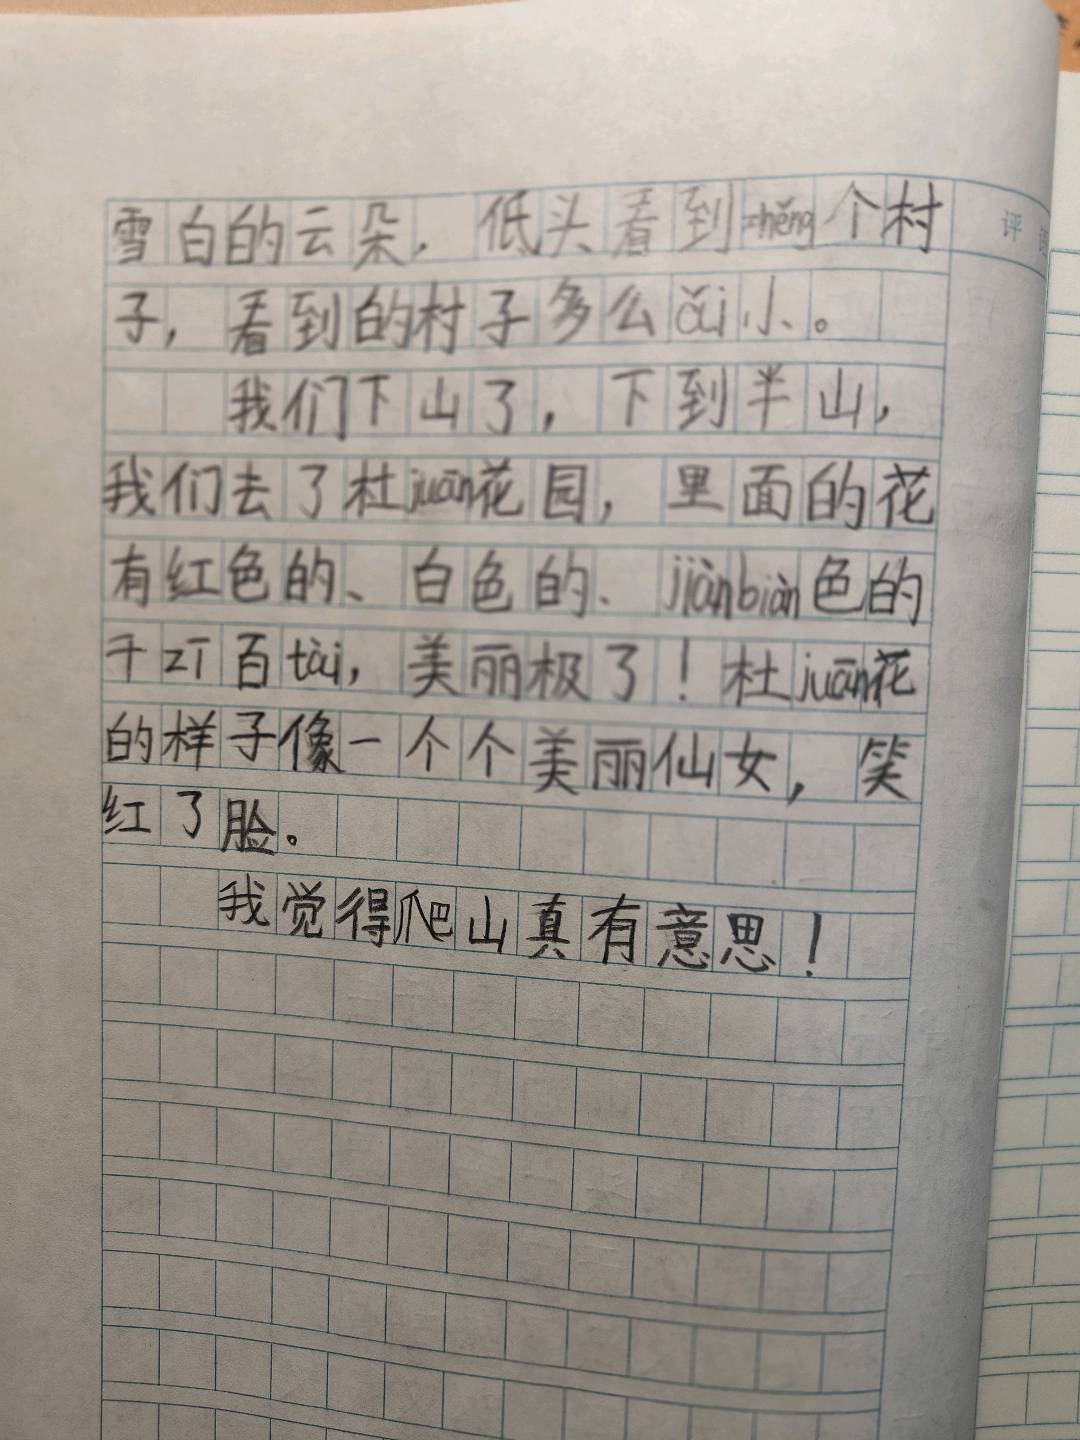 雪白的云朵，低头看到zhěng个村
子，看到的村子多么ǎi小。
我们下山了，下到半山，
我们去了杜juān花园，里面的花
有红色的、白色的、jiànbiàn色的
千zī百tài，美丽极了！杜juān花
的样子像一个个美丽仙女，笑
红了脸。
我觉得爬山真有意思！
评